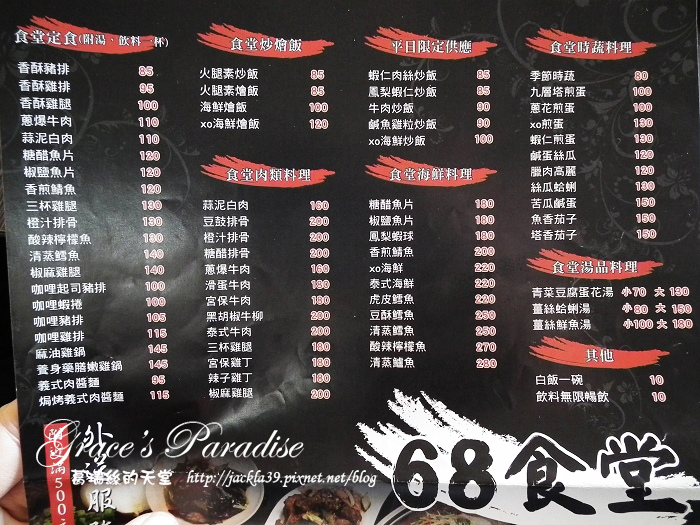 食堂定食(附湯、飲料一杯)
香酥豬排 85
香酥雞排 95
香酥雞腿 100
蔥爆牛肉 110
蒜泥白肉 110
糖醋魚片 120
椒鹽魚片 120
香煎鯖魚 120
三杯雞腿 130
橙汁排骨 130
酸辣檸檬魚 130
清蒸鱈魚 140
椒麻雞腿 140
咖哩起司豬排 140
咖哩蝦捲 100
咖哩豬排 105
咖哩雞排 115
麻油雞鍋 145
養身藥膳嫩雞鍋 145
義式肉醬麵 95
焗烤義式肉醬麵 115
食堂炒燴飯
火腿素炒飯 85
火腿素炒飯 85
海鮮燴飯 100
xo海鮮燴飯 120
食堂肉類料理
蒜泥白肉 160
豆鼓排骨 200
橙汁排骨 200
糖醋排骨 200
蔥爆牛肉 160
滑蛋牛肉 180
宮保牛肉 180
黑胡椒牛柳 200
泰式牛肉 200
三杯雞丁 180
宮保雞丁 180
辣子雞丁 180
椒麻雞腿 200
平日限定供應
蝦仁肉絲炒飯 85
鳳梨蝦仁炒飯 85
牛肉炒飯 90
鹹魚雞粒炒飯 90
xo海鮮炒飯 100
食堂海鮮料理
糖醋魚片 180
椒鹽魚片 180
鳳梨蝦球 180
香煎鯖魚 200
xo海鮮 220
泰式海鮮 220
虎皮鱈魚 220
豆酥鱈魚 250
清蒸鱈魚 250
酸辣檸檬魚 270
清蒸鱸魚 280
食堂時蔬料理
季節時蔬 80
九層塔煎蛋 100
蔥花煎蛋 100
xo煎蛋 130
蝦仁煎蛋 130
鹹蛋絲瓜 120
臘肉高麗 120
絲瓜蛤蜊 130
苦瓜鹹蛋 150
魚香茄子 150
塔香茄子 150
食堂湯品料理
青菜豆腐蛋花湯 小70 大 130
薑絲蛤蜊湯 小80 大 150
薑絲鮮魚湯 小100 大 180
其他
白飯一碗 10
飲料無限暢飲 10
68食堂
Grace's Paradise
葛瑞絲的天堂 http://jackla39.pixnet.net/blog